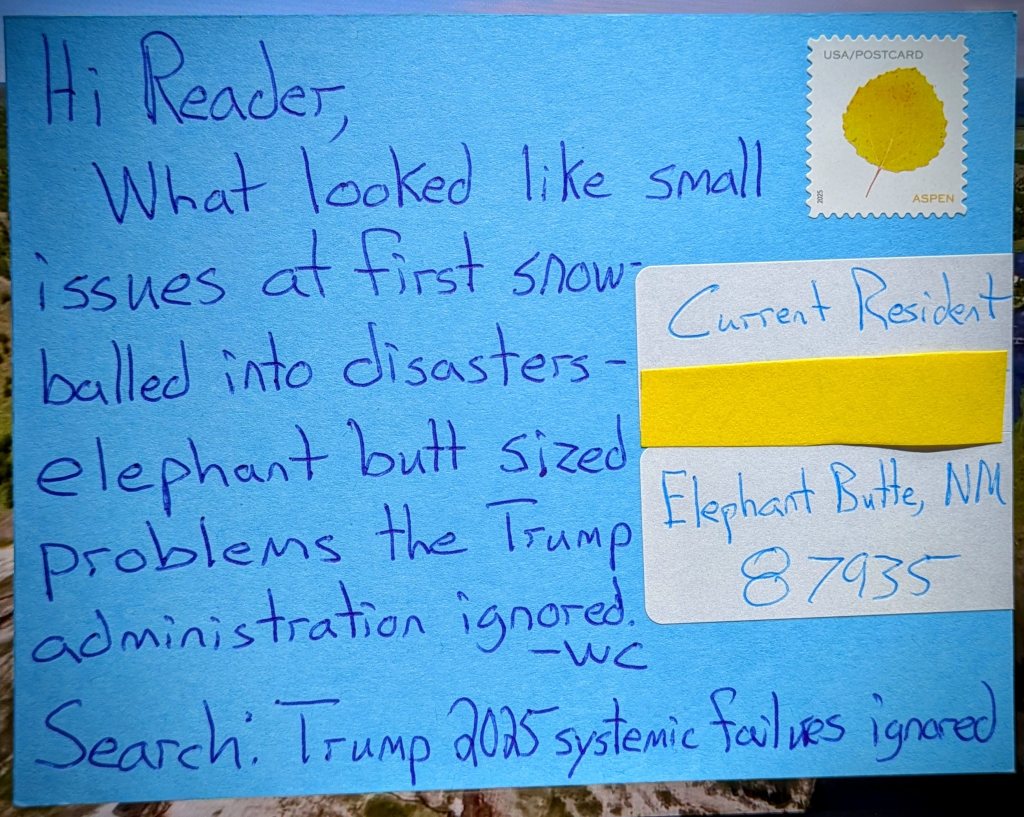 Hi Reader,
What looked like small
issues at first snow-
balled into disasters-
elephant butt sized
problems the Trump
administration ignored.
-WC
Search: Trump 2025 systemic failures ignored
USA/POSTCARD
2025
ASPEN
Current Resident
Elephant Butte, NM
87935